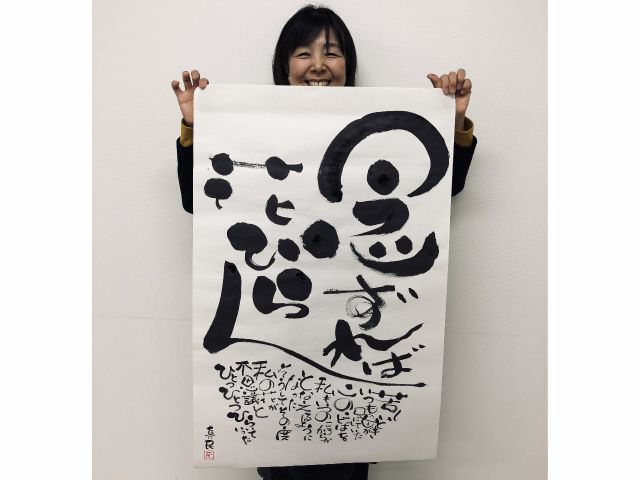 念ずれば
花ひらく
苦しいとき
母がいつも
口にしていた
このことばを
私もいつの頃からか
となえるように
なった
そうしてその度
私の花が
不思議と
ひとつひとつ
ひらいていった
真民